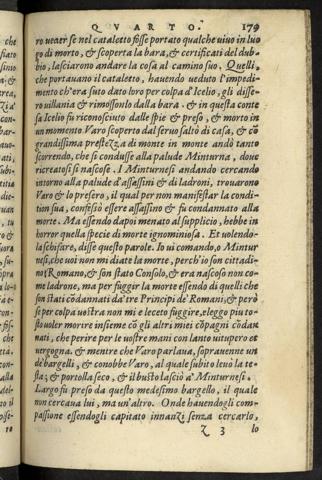 QVARTO. 179
ro veder se nel cataletto fosse portato qualche viuo in luo
go di morto, & scoperta la bara, & certificati del dub-
bio, lasciarono andare la cosa al camino suo. Quelli,
che portauano il cataletto, hauendo veduto l'impedi-
mento ch'era suto dato loro per colpa d'Icelio, gli disse-
ro uillania & rimossonlo dalla bara. & in questa conte
sa Icelio fu riconosciuto dalle spie e preso, & morto in
un momento Varo scoperto dal seruo saltò di casa, & cō
grandissima prestezza di monte in monte andò tanto
scorrendo, che si condusse alla palude Minturna, doue
ricreatosi si nascose. I Minturnesi andando cercando
intorno alla palude d'assassini & di ladroni, trouarono
Varo & lo presero, il qual per non manifestar la condi-
tion sua, confessò essere assassino & fu condannato alla
morte. Ma essendo dapoi menato al supplicio, hebbe in
horror quella specie di morte ignominiosa. Et uolendo-
la schifare, disse queste parole. Io ui comando, o Mintur
nesi, che uoi non mi diate la morte, perch'io son cittadi-
no Romano, & son stato Consolo, & era nascoso non co-
me ladrone, ma per fuggir la morte essendo di quelli che
son stati cōdannati da' tre Principi de' Romani, & però
se per colpa uostra non mi è leceto fuggire, eleggo piu to-
sto uoler morire insieme cō gli altri miei cōpagni cōdan
nati, che perire per le uostre mani con tanto uitupero et
uergogna. & mentre che Varo parlaua, soprauenne un
de' bargelli, & conobbe Varo, al quale subito leuò la te-
sta; & portolla seco, & il busto lasciò a' Minturnesi.
Largo fu preso da questo medesimo bargello, il quale
non cercaua lui, ma un'altro. Onde hauendogli com-
passione essendogli capitato innanzi senza cercarlo,
Z 3 lo